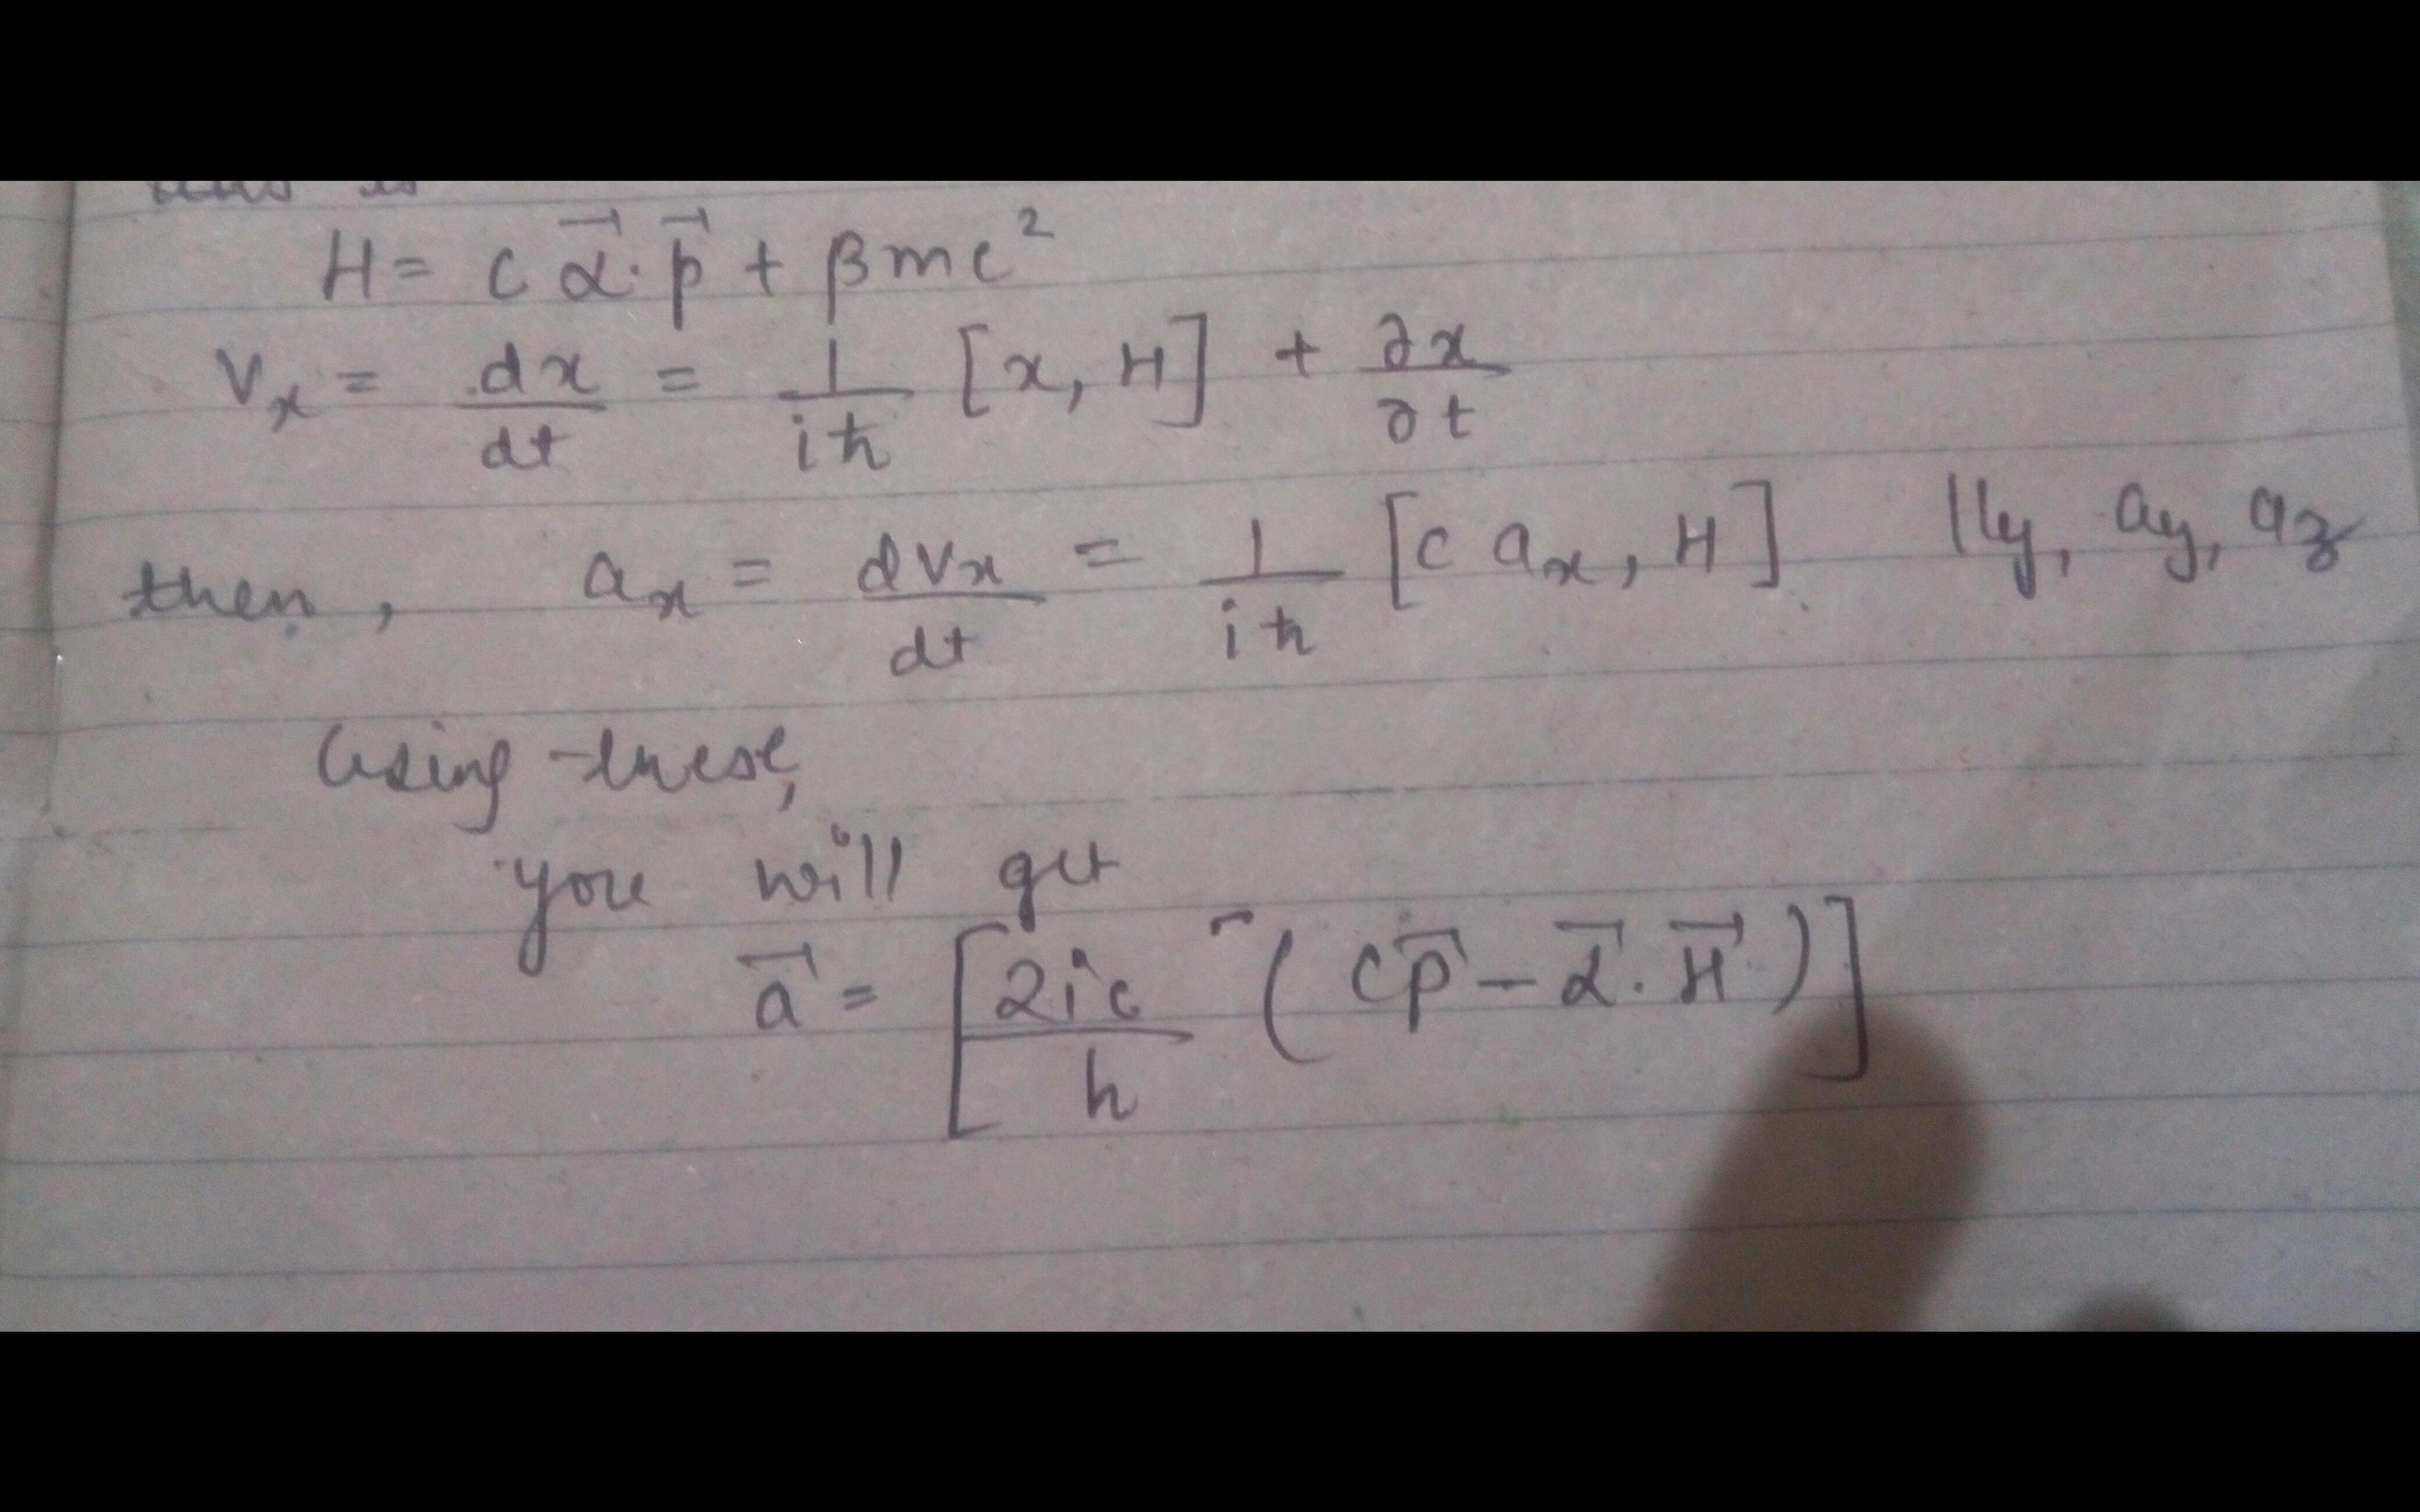 H = c α⃗·p⃗ + βmc²
Vₓ = dx/dt = 1/iħ [x, H] + ∂x/∂t
then, aₓ = dvₓ/dt = 1/iħ [c aₓ, H] lly, ay, az
Using these,
you will get
a⃗ = [2ic/h (cp⃗ - α⃗·H⃗)]